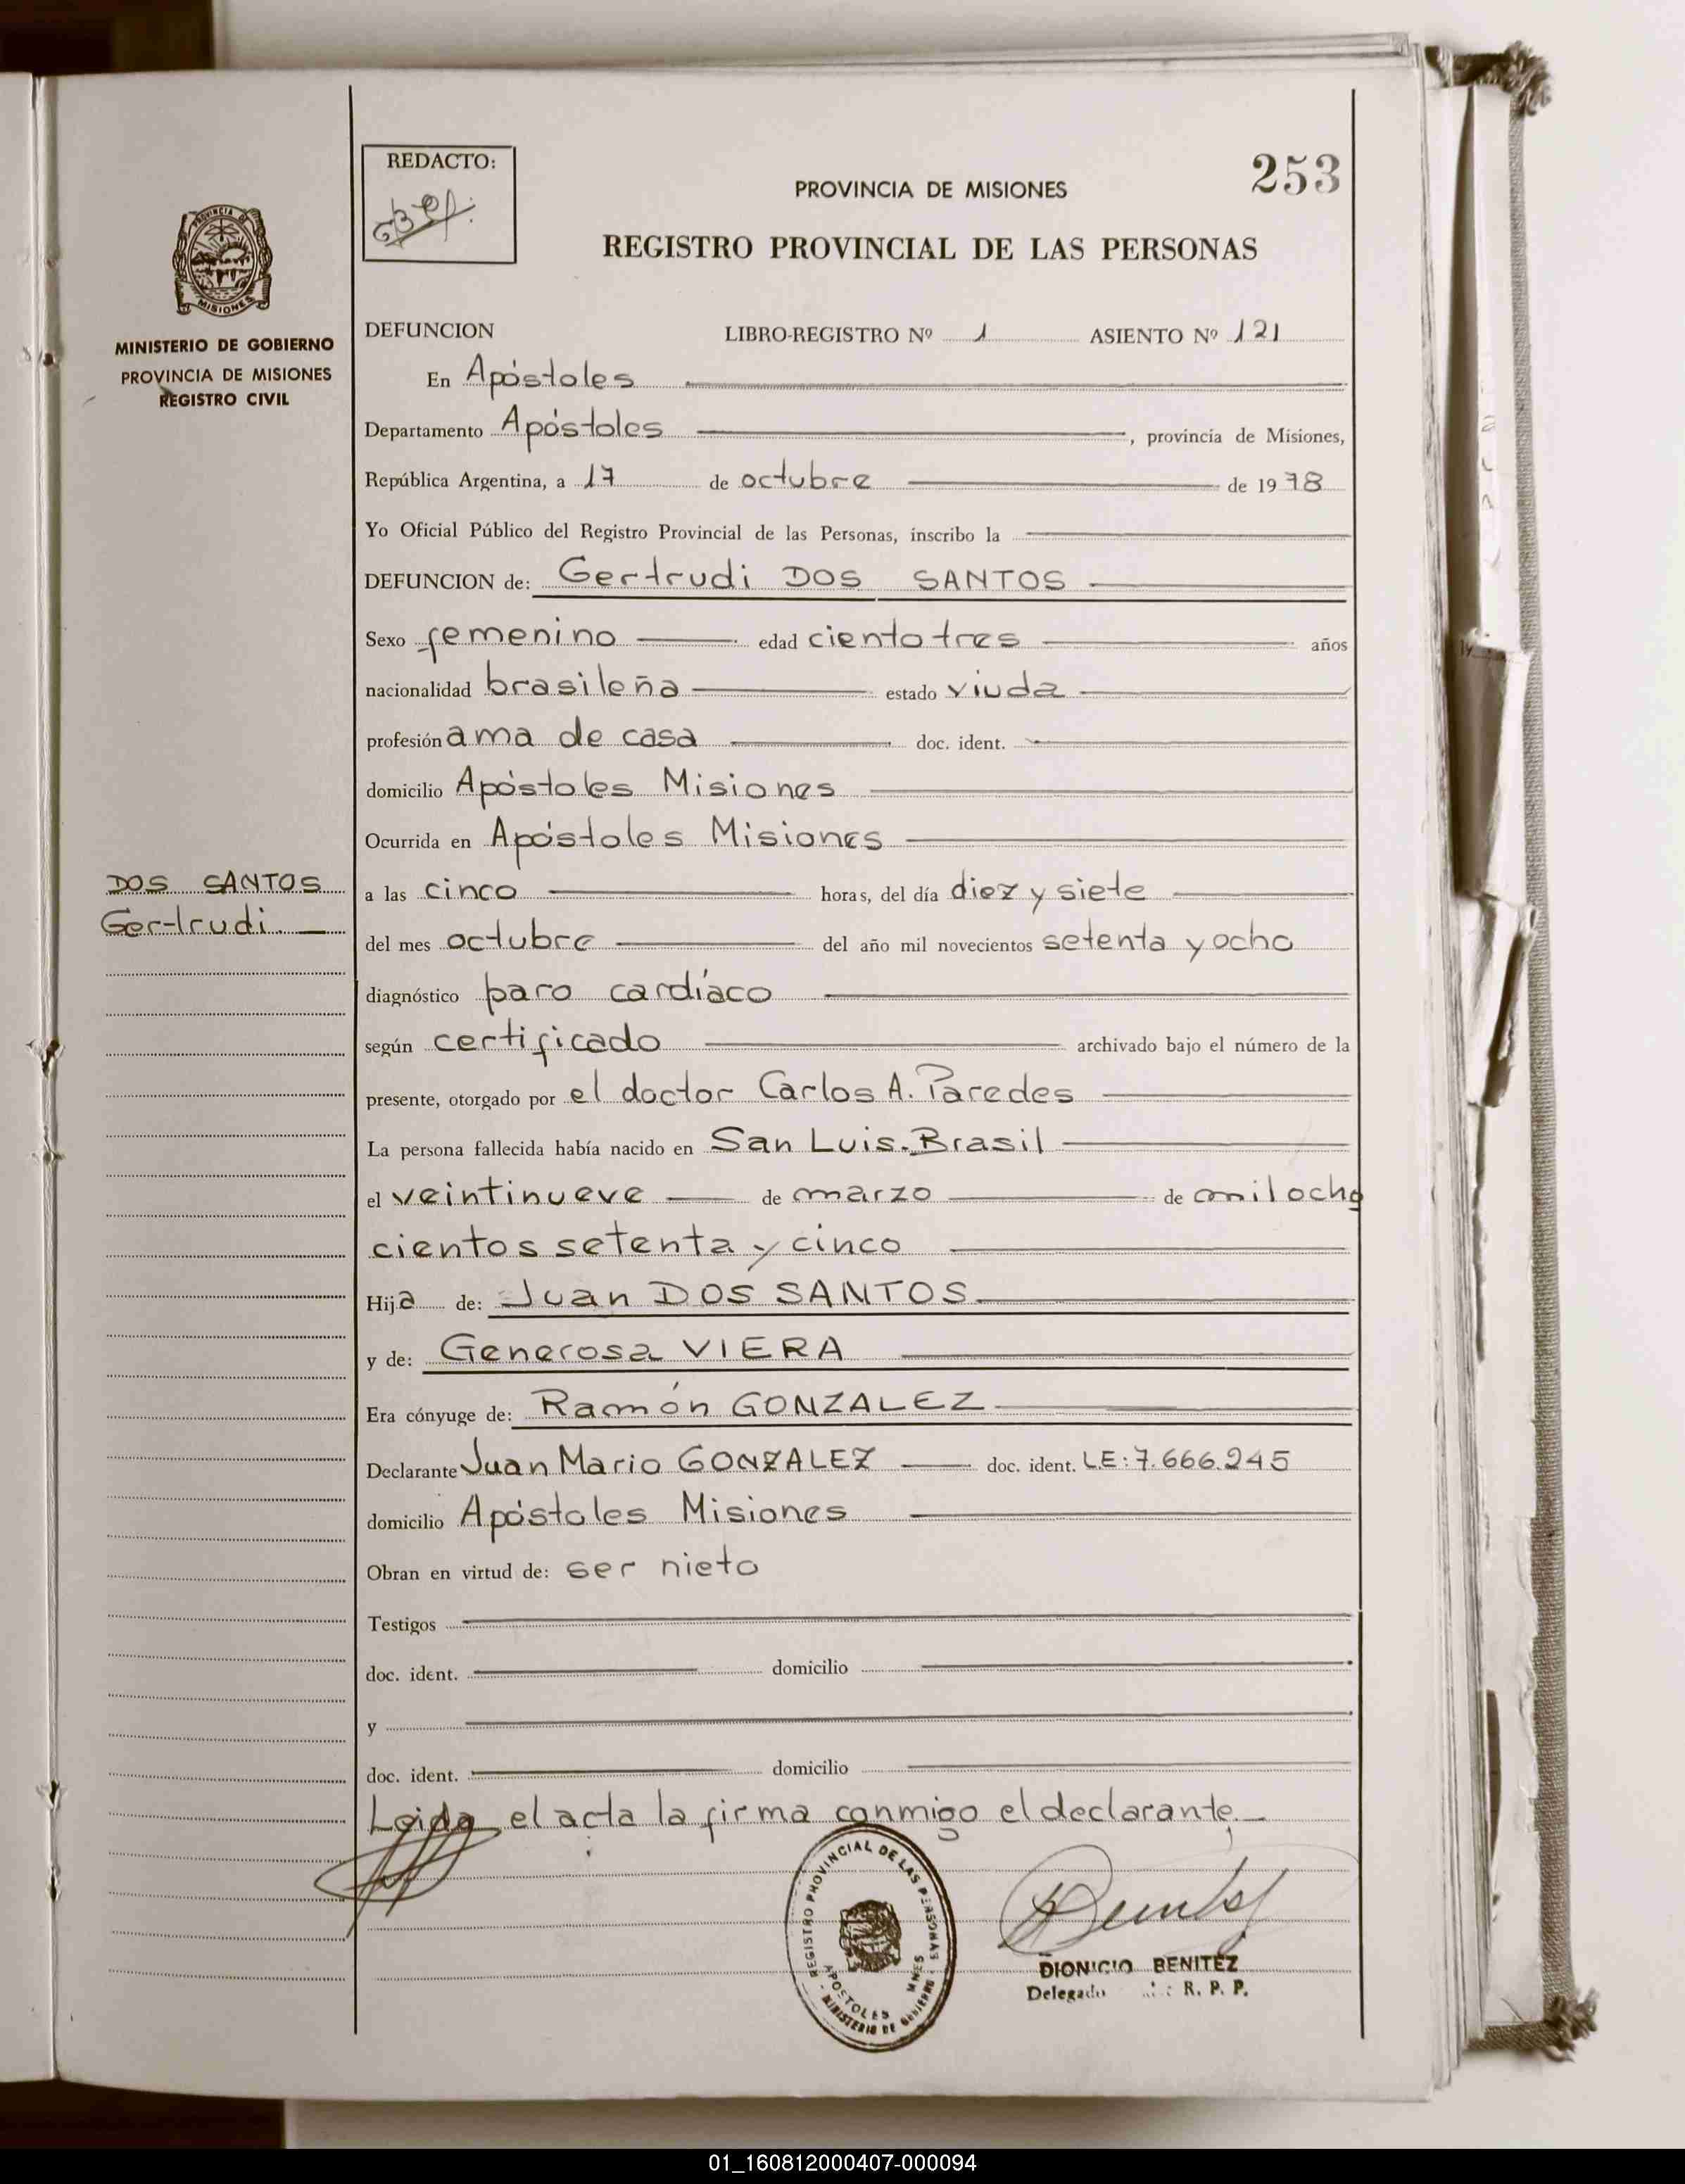 REDACTO:
253
PROVINCIA DE MISIONES
REGISTRO PROVINCIAL DE LAS PERSONAS
PROVINCIA DE
MISIONES
MINISTERIO DE GOBIERNO
PROVINCIA DE MISIONES
REGISTRO CIVIL
DEFUNCION LIBRO-REGISTRO Nº 1 ASIENTO Nº 121
En Apóstoles
Departamento Apóstoles, provincia de Misiones,
República Argentina, a 17 de octubre de 1978
Yo Oficial Público del Registro Provincial de las Personas, inscribo la
DEFUNCION de: Gertrudi DOS SANTOS
Sexo femenino edad ciento tres años
nacionalidad brasileña estado viuda
profesión ama de casa doc. ident.
domicilio Apóstoles Misiones
Ocurrida en Apóstoles Misiones
DOS SANTOS
Gertrudi
a las cinco horas, del día diez y siete
del mes octubre del año mil novecientos setenta y ocho
diagnóstico paro cardíaco
según certificado archivado bajo el número de la
presente, otorgado por el doctor Carlos A. Paredes
La persona fallecida había nacido en San Luis-Brasil
el veintinueve de marzo de mil ocho
cientos setenta y cinco
Hija de: Juan DOS SANTOS
y de: Generosa VIERA
Era cónyuge de: Ramón GONZALEZ
Declarante Juan Mario GONZALEZ doc. ident. LE: 7.666.245
domicilio Apóstoles Misiones
Obran en virtud de: ser nieto
Testigos
doc. ident. domicilio
y
doc. ident. domicilio
Leida el acta la firma conmigo el declarante.
REGISTRO PROVINCIAL DE LAS PERSONAS
APOSTOLES MNES
MINISTERIO DE GOBIERNO
DIONICIO BENITEZ
Delegado R. P. P.
01_160812000407-000094